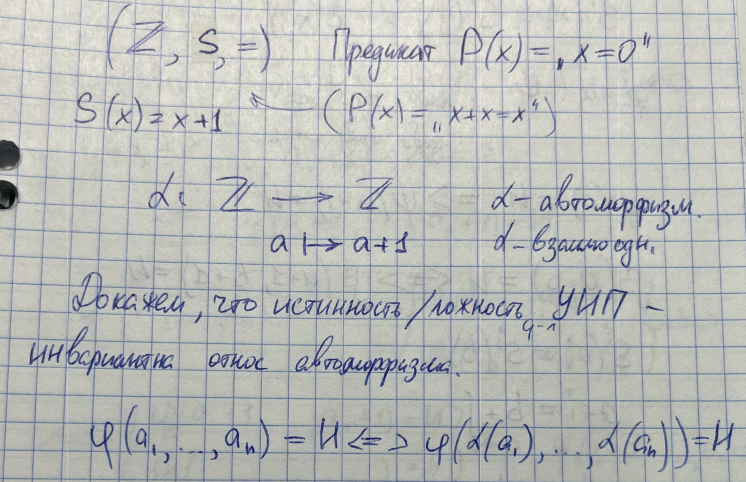 (ℤ, S, =) Предикат P(x) = „x=0“
S(x) = x+1 ← (P(x) = „x+x=x“)
α: ℤ → ℤ α – автоморфизм.
a ↦ a+1 α – взаимоодн.
Докажем, что истинность/ложность ф-л УИП –
инвариантна относ автоморфизма.
φ(a₁, ..., aₙ) = И <=> φ(α(a₁), ..., α(aₙ)) = И